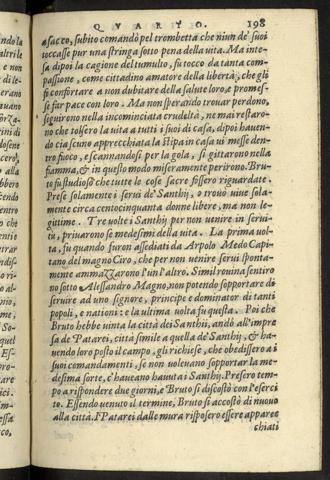 QVARTO. 198
a sacco, subito comandò pel trombetta che niun de' suoi
toccasse pur una stringa sotto pena della vita. Ma inte-
sa dipoi la cagione del tumulto, fu tocco da tanta com-
passione, come cittadino amatore della libertà, che gli
fe confortare a non dubitare della salute loro, e promes-
se fur pace con loro. Ma non sperando trovar perdono,
seguirono nella incominciata crudeltà, ne mai restaro-
no che tolsero la vita a tutti i suoi di casa, dipoi haven-
do ciascuno apprecchiata la stipa in casa vi messe den-
tro fuoco, e scannandosi per la gola, si gittarono nella
fiamma, & in questo modo miseramente perirono. Bru-
to fu studioso che tutte le cose sacre fissero riguardate.
Prese solamente i servi de' Santhij, e trovò vive sola-
mente circa centocinquanta donne libere, ma non le-
gitime. Tre volte i Santhij per non venire in servi-
tù, privarono se medesimi della vita. La prima vol-
ta, fu quando furon assediati da Arpolo Medo Capi-
tano del magno Ciro, che per non venire servi spontа-
mente ammazzarono l'un l'altro. Simil rovina sentiro
no sotto Alessandro Magno, non potendo sopportare di
servire ad uno signore, principe e dominator di tanti
popoli, e nationi: e la ultima volta fu questa. Poi che
Bruto hebbe vinta la città dei Santhii, andò all'impre
sa de Patarei, città simile a quella de' Santhij, & ha-
vendo loro posto il campo, gli richiese, che obedissero a i
suoi comandamenti, se non volevano sopportar la me-
desima sorte, c'haveano havuta i Santhij. Presero tem-
po a rispondere due giorni, e Bruto si discostò con l'eserci
to. Essendo venuto il termine, Bruto si accostò di nuovo
alla città. I Patarei dalle mura risposero essere apparec
chiati